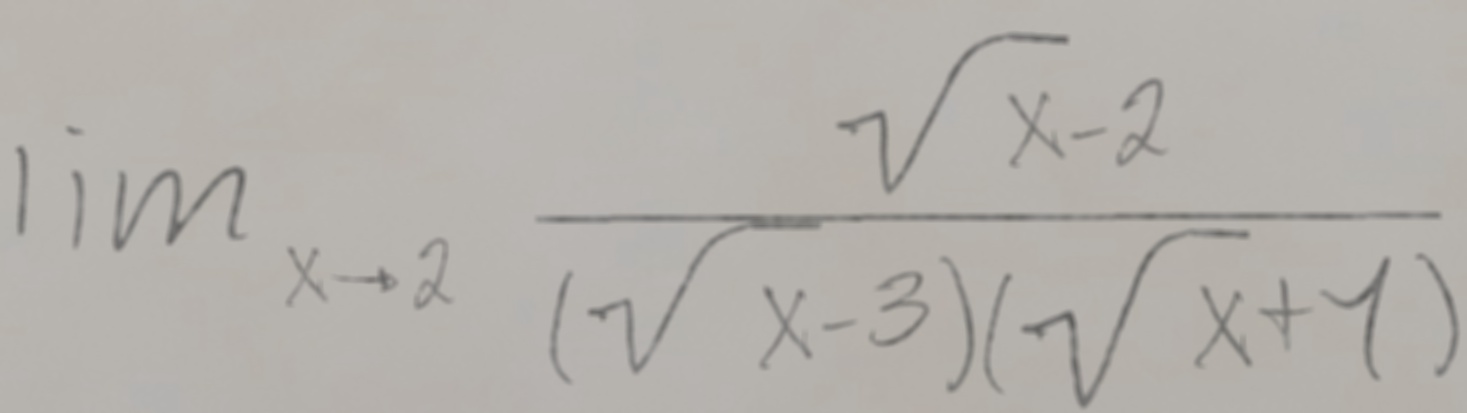 \lim_{x \to 2} \frac{\sqrt{x}-2}{(\sqrt{x}-3)(\sqrt{x}+4)}